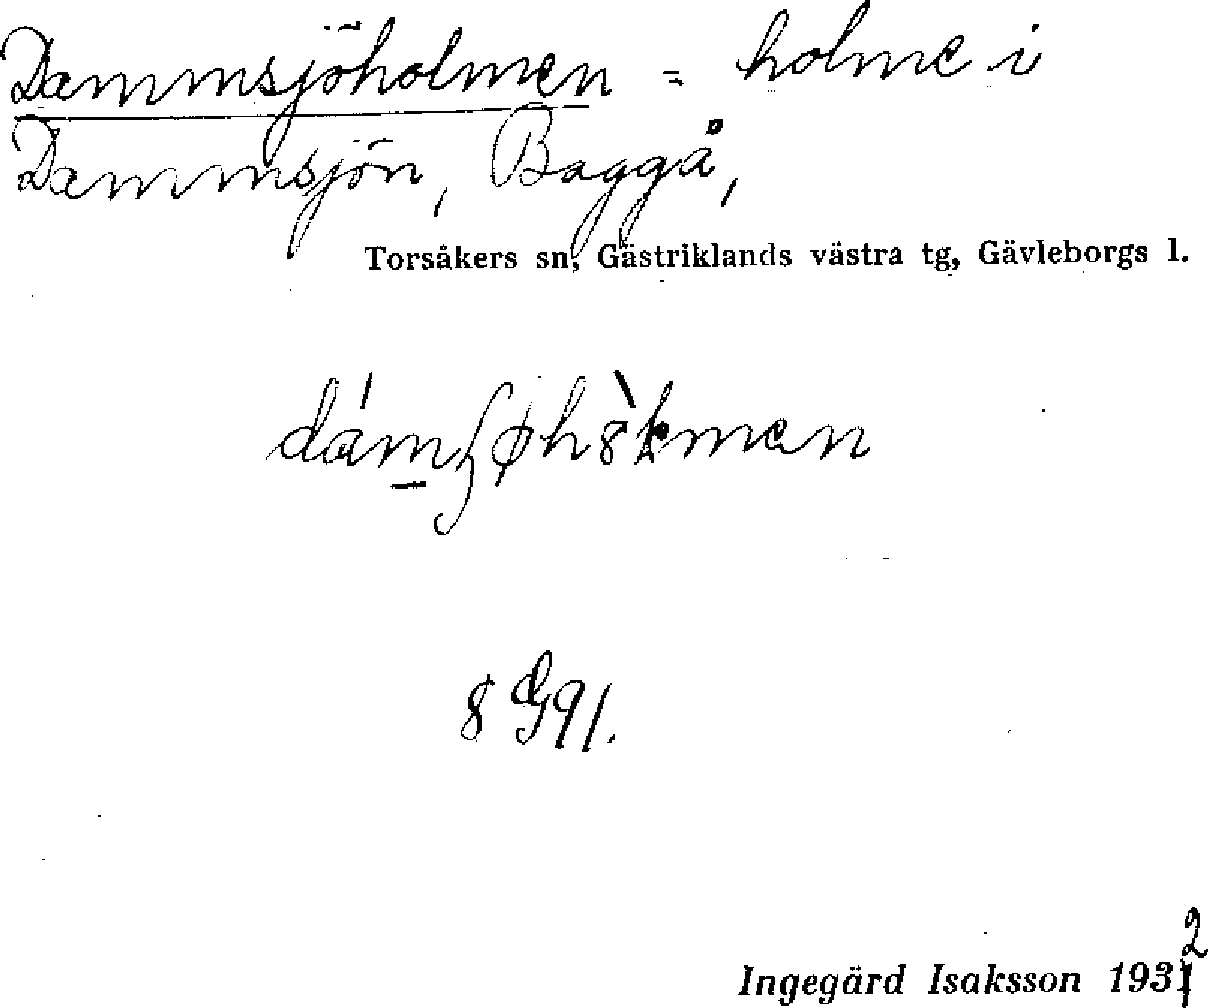 Dammsjöholmen = holme i
Dammsjön, Baggå,
Torsåkers sn, Gästriklands västra tg, Gävleborgs l.
8 G 9 f.
Ingegärd Isaksson 1932